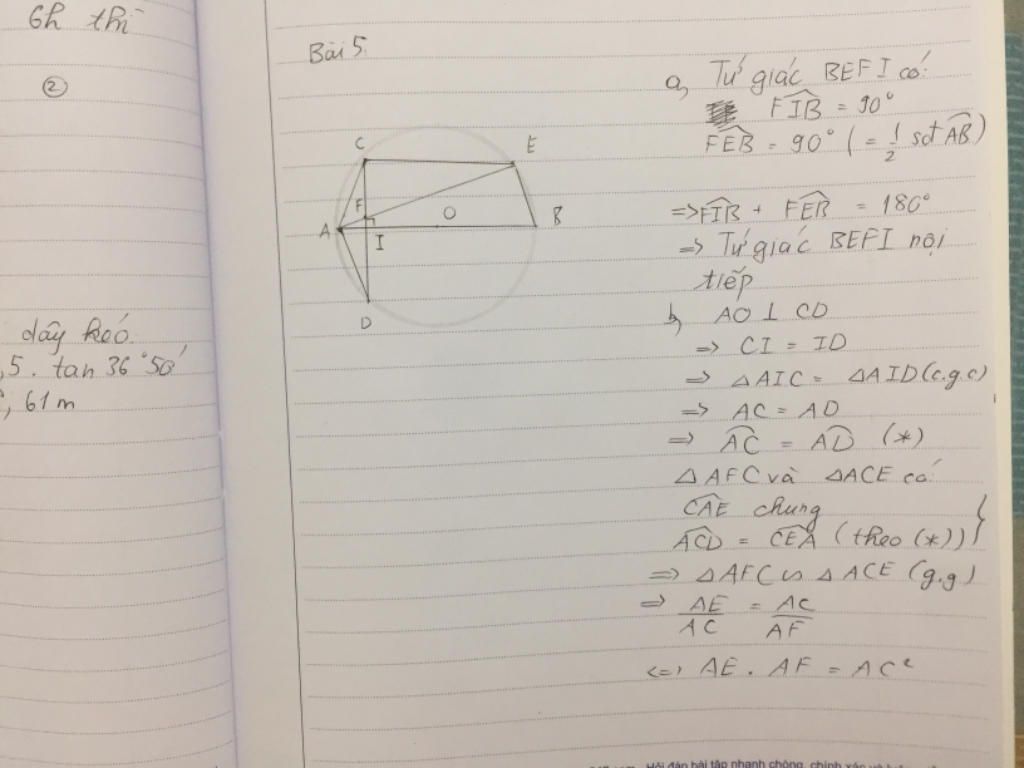 6h thì
②
dây kéo
,5 . tan 36°50'
, 61 m
Bài 5.
C
E
F
O
A
B
I
D
a, Tứ giác BEFI có:
FIB = 90°
FEB = 90° ( = 1/2 sđ AB )
=> FIB + FEB = 180°
=> Tứ giác BEFI nội
tiếp
b, AO ⊥ CD
=> CI = ID
=> ΔAIC = ΔAID (c.g.c)
=> AC = AD
=> AC = AD (*)
ΔAFC và ΔACE có:
CAE chung
ACD = CEA (theo (*)) }
=> ΔAFC ∽ ΔACE (g.g)
=> AE/AC = AC/AF
<=> AE . AF = AC²
Hỏi đáp bài tập nhanh chóng, chính xác và